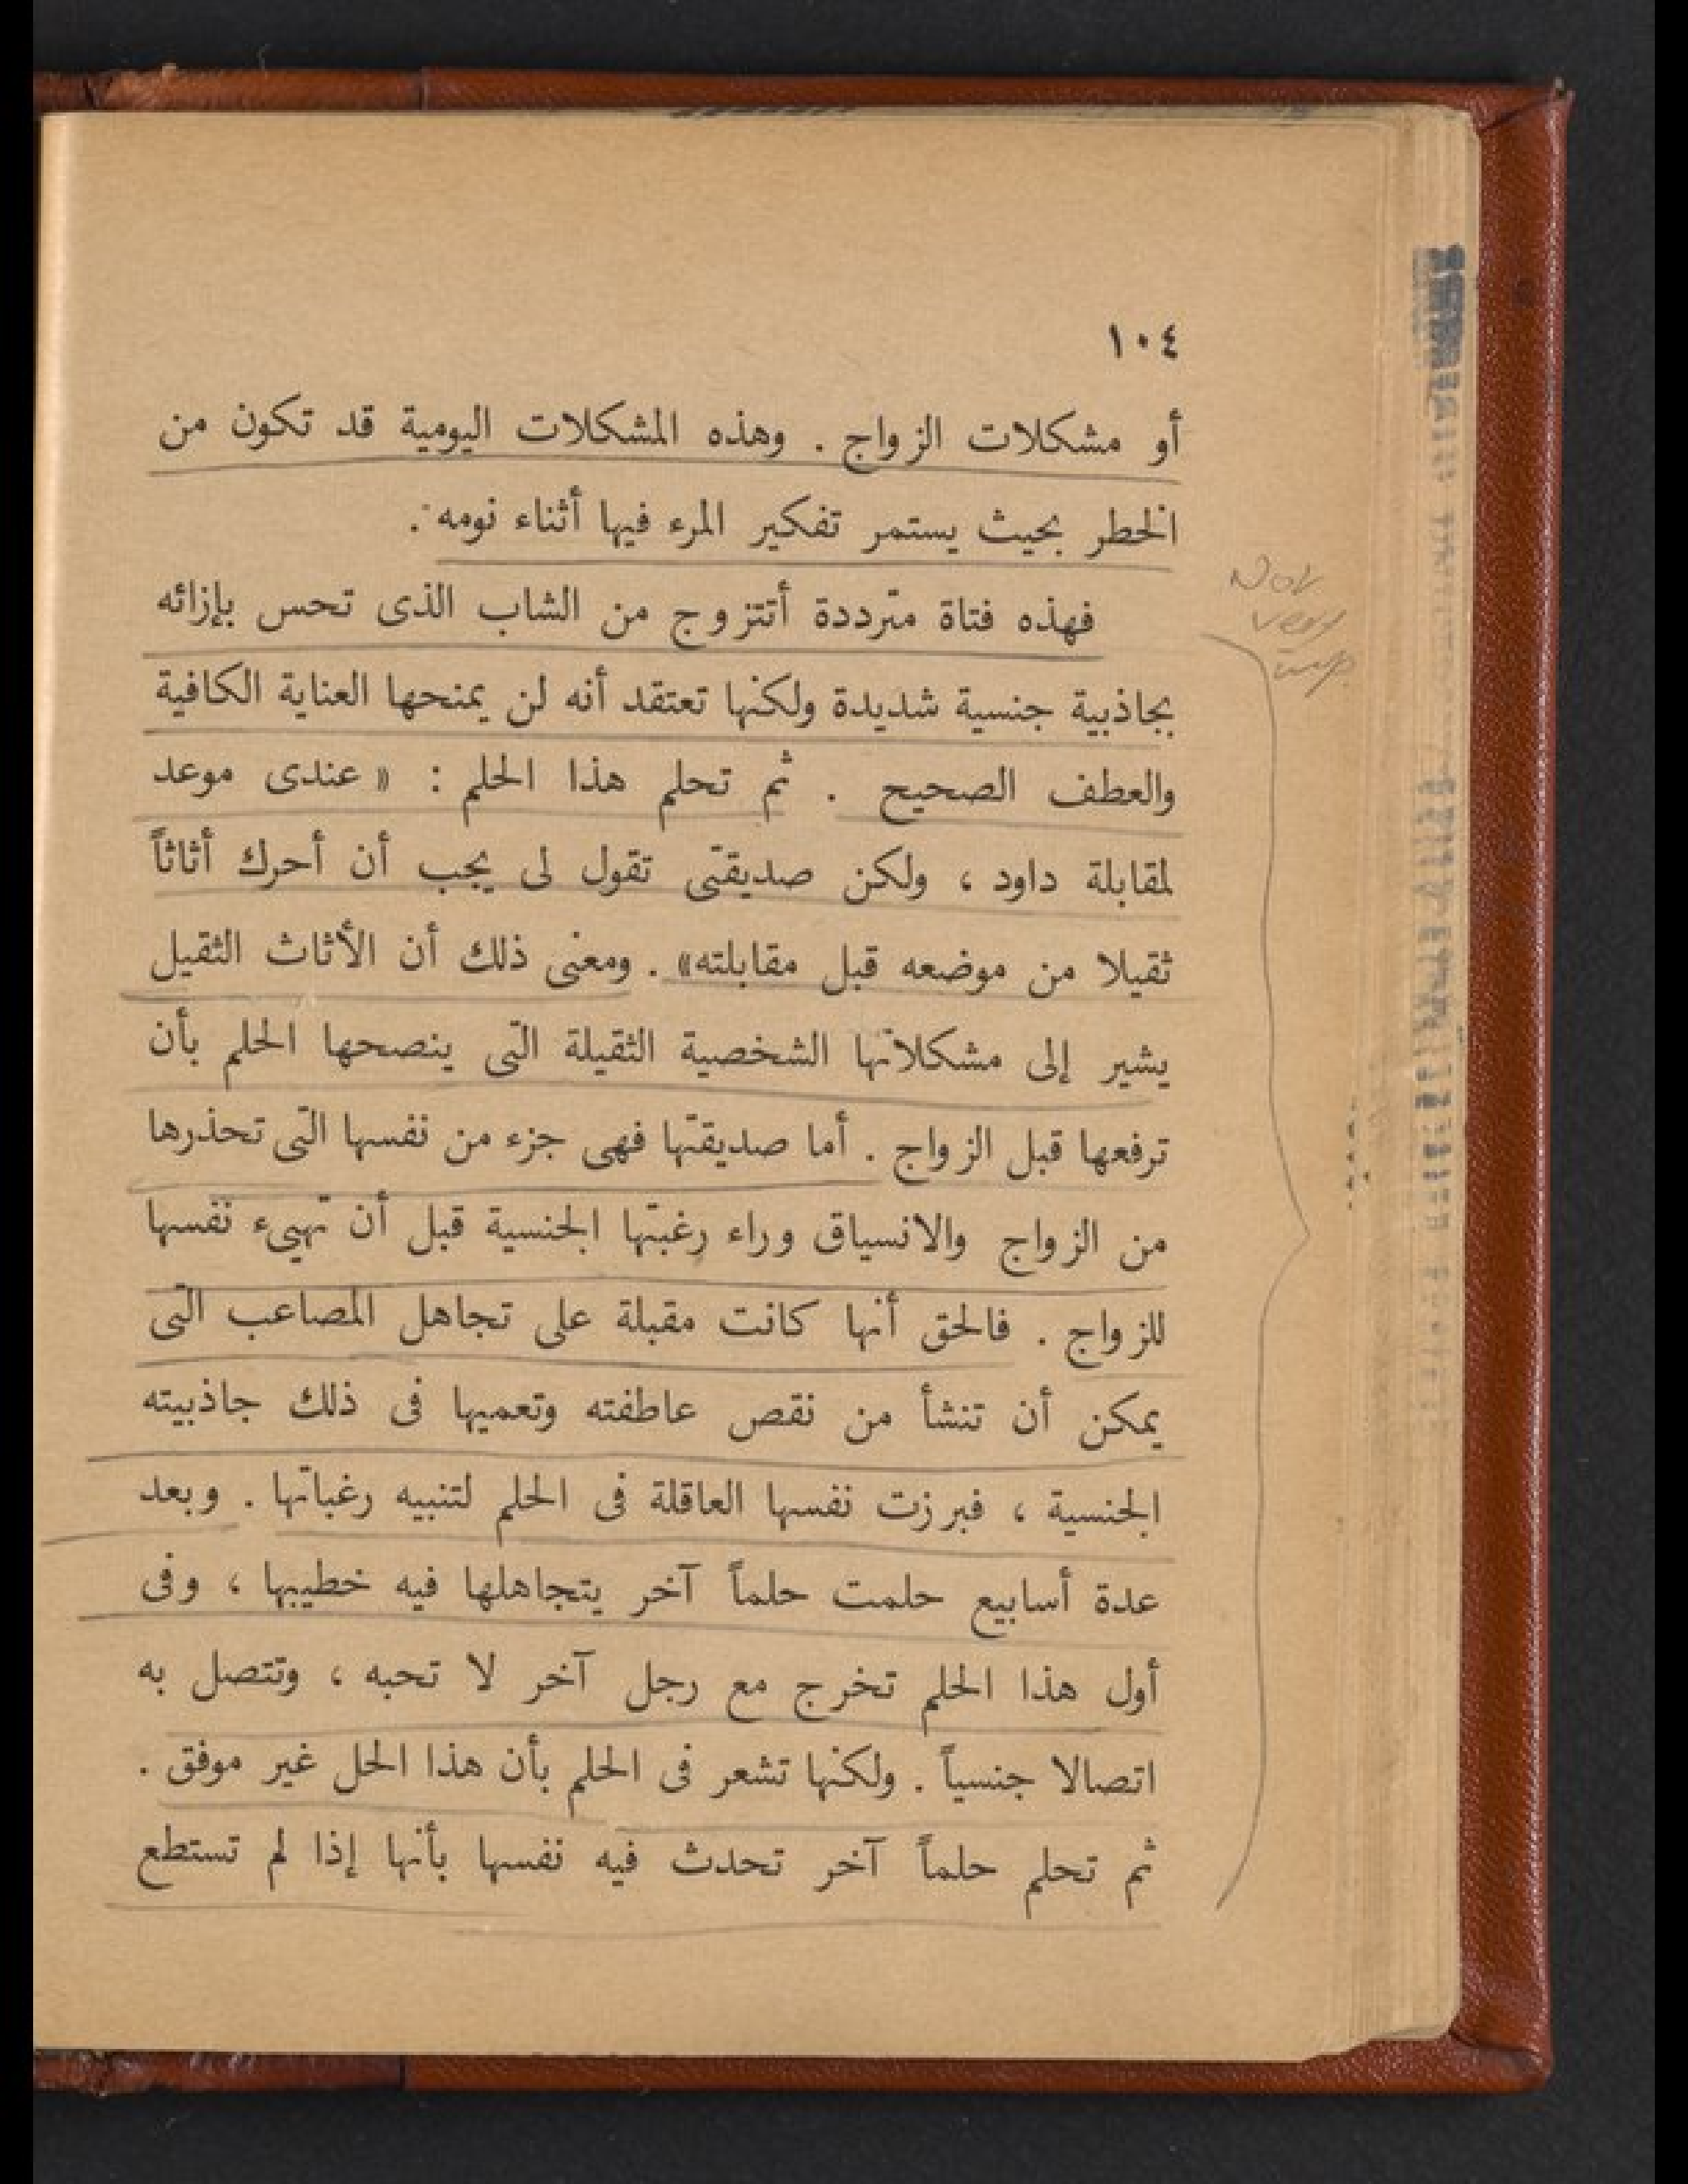 ١٠٤
أو مشكلات الزواج . وهذه المشكلات اليومية قد تكون من
الخطر بحيث يستمر تفكير المرء فيها أثناء نومه .
فهذه فتاة مترددة أتتزوج من الشاب الذى تحس بإزائه
بجاذبية جنسية شديدة ولكنها تعتقد أنه لن يمنحها العناية الكافية
والعطف الصحيح . ثم تحلم هذا الحلم : « عندى موعد
لمقابلة داود ، ولكن صديقتى تقول لى يجب أن أحرك أثاثاً
ثقيلا من موضعه قبل مقابلته» . ومعنى ذلك أن الأثاث الثقيل
يشير إلى مشكلاتها الشخصية الثقيلة التى ينصحها الحلم بأن
ترفعها قبل الزواج . أما صديقتها فهى جزء من نفسها التى تحذرها
من الزواج والانسياق وراء رغبتها الجنسية قبل أن تهيىء نفسها
للزواج . فالحق أنها كانت مقبلة على تجاهل المصاعب التى
يمكن أن تنشأ من نقص عاطفته وتعميها فى ذلك جاذبيته
الجنسية ، فبرزت نفسها العاقلة فى الحلم لتنبيه رغباتها . وبعد
عدة أسابيع حلمت حلماً آخر يتجاهلها فيه خطيبها ، وفى
أول هذا الحلم تخرج مع رجل آخر لا تحبه ، وتتصل به
اتصالا جنسياً . ولكنها تشعر فى الحلم بأن هذا الحل غير موفق .
ثم تحلم حلماً آخر تحدث فيه نفسها بأنها إذا لم تستطع
Not
very
imp.